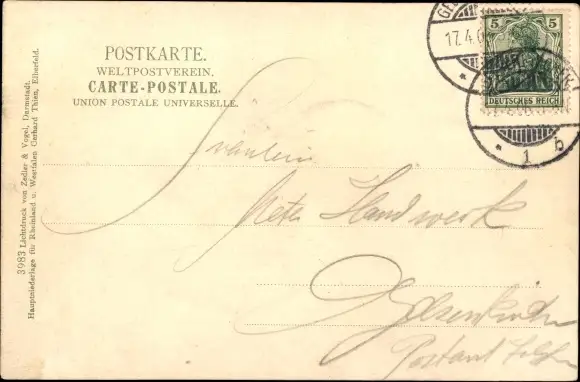 POSTKARTE.
WELTPOSTVEREIN.
CARTE-POSTALE.
UNION POSTALE UNIVERSELLE.
3983 Lichtdruck von Zedler & Vogel, Darmstadt.
Hauptniederlage für Rheinland u. Westfalen Gerhard Thien, Elberfeld.
5 5
DEUTSCHES REICH
17.4.0
* 1 b
Fräulein
Meta Handwerk
Gelsenkirchen
Postamt